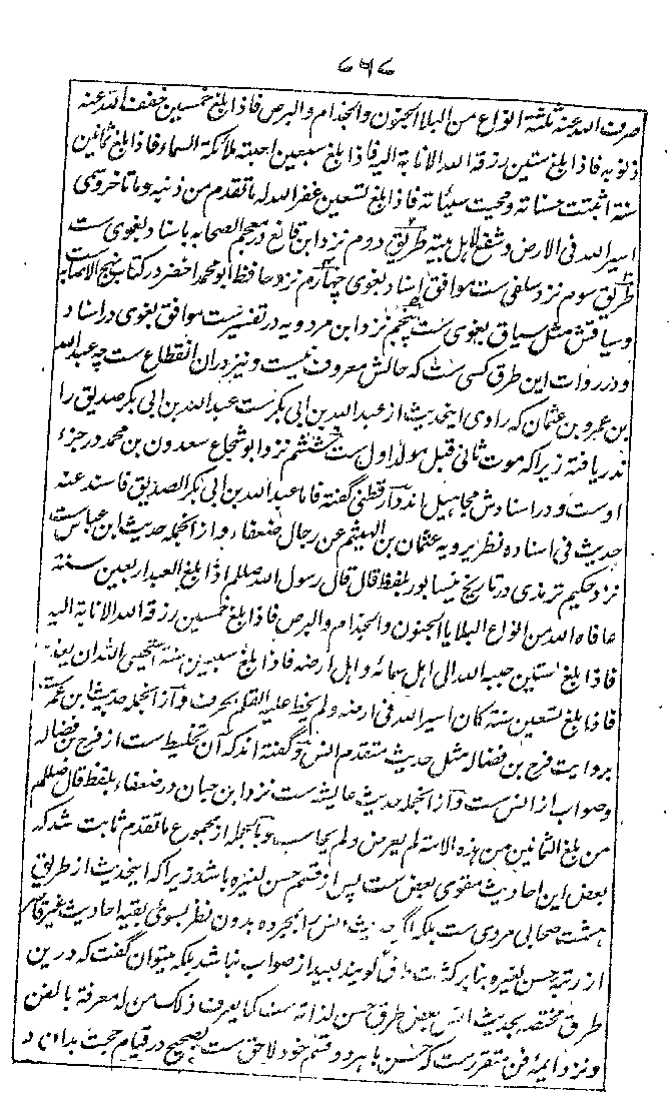 ۶۷۶
صرف اللہ عنہ ثلثۃ انواع من البلا الجنون والجذام والبرص فاذا بلغ خمسین خفف اللہ عنہ
ذنوبہ فاذا بلغ ستین رزقہ اللہ الانابۃ الیہ فاذا بلغ سبعین احبتہ ملائکۃ السماء فاذا بلغ ثمانین
سنۃ اثبتت حسناتہ ومحیت سیئاتہ فاذا بلغ تسعین غفر اللہ لہ ما تقدم من ذنبہ وما تاخر وسمی
اسیر اللہ فی الارض وشفع لاہل بیتہ طریق دوم نزد ابن قانع در معجم الصحابہ باسناد بغوی ست
طریق سوم نزد سلفی ست موافق اسناد بغوی چہارم نزد حافظ ابو محمد اخضر در کتاب نہج الاصابہ ست
وسیاقش مثل سیاق بغوی ست پنجم نزد ابن مردویہ در تفسیر ست موافق بغوی در اسناد
ودر روات این طرق کسی ست کہ حالش معروف نیست و نیز دران انقطاع ست چہ عبداللہ
بن عمرو بن عثمان کہ راوی اینحدیث از عبداللہ بن ابی بکر ست عبداللہ بن ابی بکر صدیق را
ندریافتہ زیرا کہ موت ثانی قبل مولد اول ست ششم نزد ابو شجاع سعدون بن محمد در جزء
اوست و در اسنادش مجاہیل اند دارقطنی گفتہ فاما عبداللہ بن ابی بکر الصدیق فاسند عنہ
حدیث فی اسنادہ نظر یرویہ عثمان بن الہیثم عن رجال ضعفاء و از انجملہ حدیث ابن عباس ست
نزد حکیم ترمذی در تاریخ نیسابور بلفظ قال قال رسول اللہ صللم اذا بلغ العبد اربعین سنۃ
عافاہ اللہ من انواع البلایا الجنون والجذام والبرص فاذا بلغ خمسین رزقہ اللہ الانابۃ الیہ
فاذا بلغ ستین حببہ اللہ الی اہل سمائہ واہل ارضہ فاذا بلغ سبعین سنۃ استحیی اللہ ان یعذبہ
فاذا بلغ تسعین سنۃ کان اسیر اللہ فی ارضہ ولم یخط علیہ القلم بحرف و از انجملہ حدیث ابن عمر ست
بروایت فرج بن فضالہ مثل حدیث متقدم انس وگفتہ اند کہ آن تخلیط ست از فرج بن فضالہ
وصواب از انس ست و از انجملہ حدیث عایشہ ست نزد ابن حبان در ضعفاء بلفظ قال صللم
من بلغ الثمانین من ہذہ الامۃ لم یعرض ولم یحاسب وبالجملہ از مجموع ما تقدم ثابت شد کہ
بعض این احادیث مقوی بعض ست پس از قسم حسن لغیرہ باشد زیرا کہ اینحدیث از طریق
ہشت صحابی مروی ست بلکہ اگر حدیث انس را بمجردہ بدون نظر بسوی بقیہ احادیث غیر قاصر
از رتبہ حسن لغیرہ بنا بر کثرت طرق گویند بعید از صواب نباشد بلکہ میتوان گفت کہ درین
طرق مختصہ بحدیث انس بعض طرق حسن لذاتہ ست کما یعرف ذلک من لہ معرفۃ بالفن
ونزد ایمۂ فن متقرر ست کہ حسن باہر دو قسم خود لاحق ست بصحیح در قیام حجت بدان و